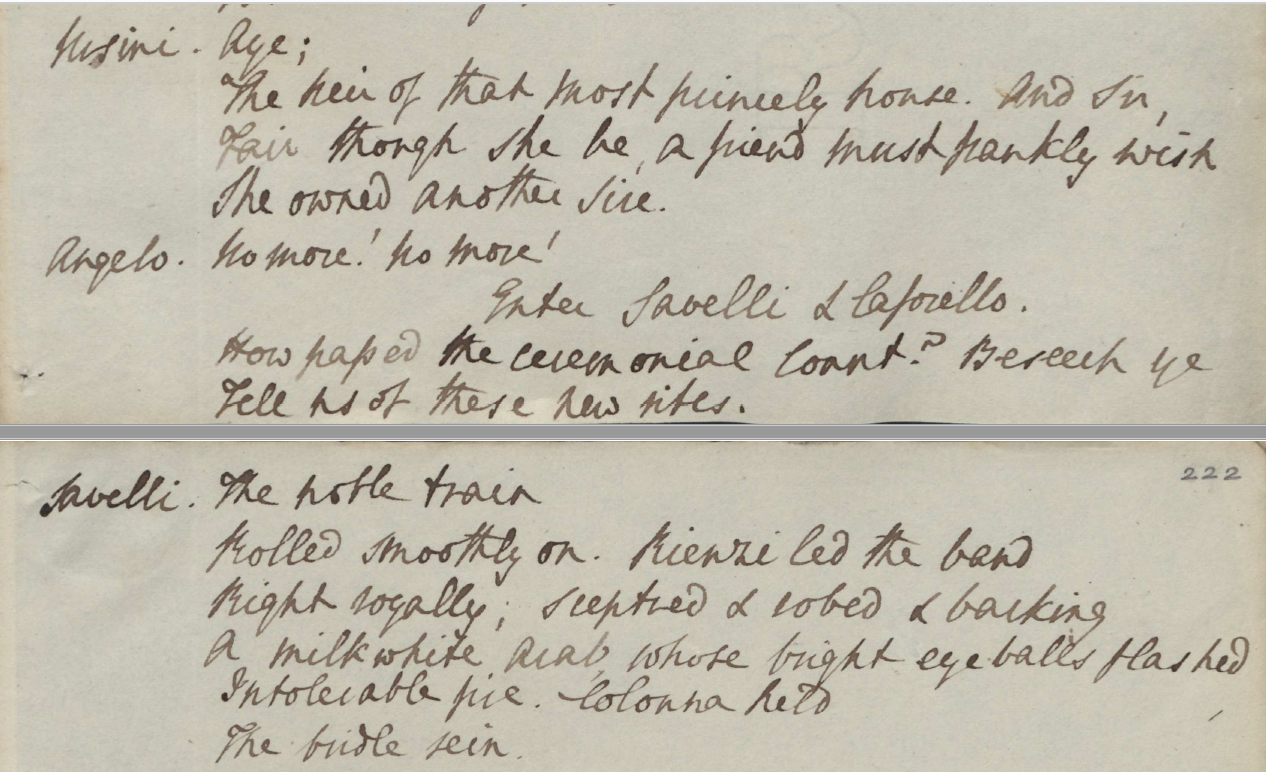 Ursini. Aye;
The heir of that most princely house. And Sir,
Fair though she be, a friend must frankly wish
She owned another Sire.
Angelo. No more! No more!
Enter Savelli & Cafarello.
How passed the ceremonial Count? Beseech ye
Tell us of these new rites.
222
Savelli. The noble train
Rolled smoothly on. Rienzi led the band
Right royally; sceptred & robed & backing
A milkwhite Arab, whose bright eyeballs flashed
Intolerable fire. Colonna held
The bridle rein.